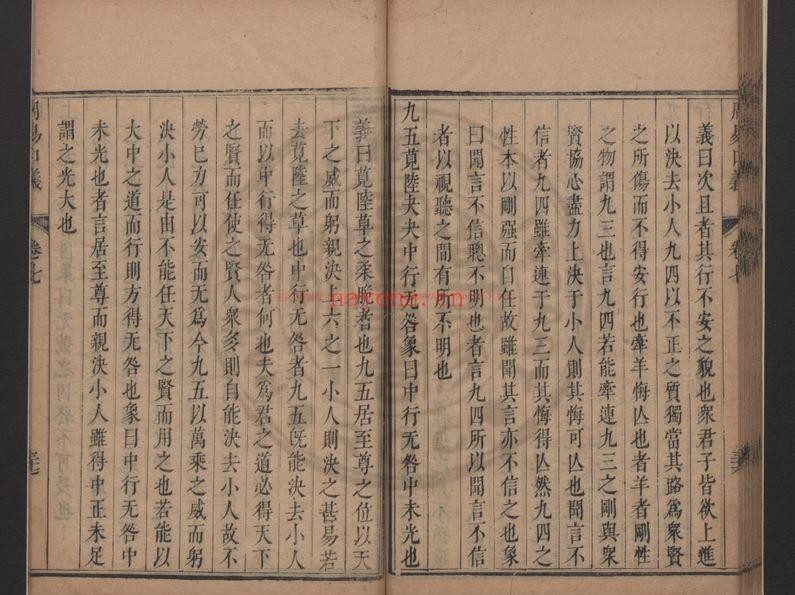 義曰次且者其行不安之貌也衆君子皆欲上進
以決去小人九四以不正之質獨當其路爲衆賢
之所傷而不得安行也牽羊悔亾也者羊者剛性
之物謂九三也言九四若能牽連九三之剛與衆
賢協心盡力上決于小人則其悔可亾也聞言不
信者九四雖牽連于九三而其悔得亾然九四之
性本以剛强而自任故雖聞其言亦不信之也象
曰聞言不信聰不明也者言九四所以聞言不信
者以視聽之間有所不明也
九五莧陸夬夬中行无咎象曰中行无咎中未光也
義曰莧陸草之柔脆者也九五居至尊之位以天
下之威而躬親決上六之一小人則決之甚易若
去莧陸之草也中行无咎者九五旣能決去小人
而以中行得无咎者何也夫爲君之道必得天下
之賢而任使之賢人衆多則自能決去小人故不
勞已力可以安而无爲今九五以萬乘之威而躬
決小人是由不能任天下之賢而用之也若能以
大中之道而行則方得无咎也象曰中行无咎中
未光也者言居至尊而親決小人雖得中正未足
謂之光大也
周易口義
卷七